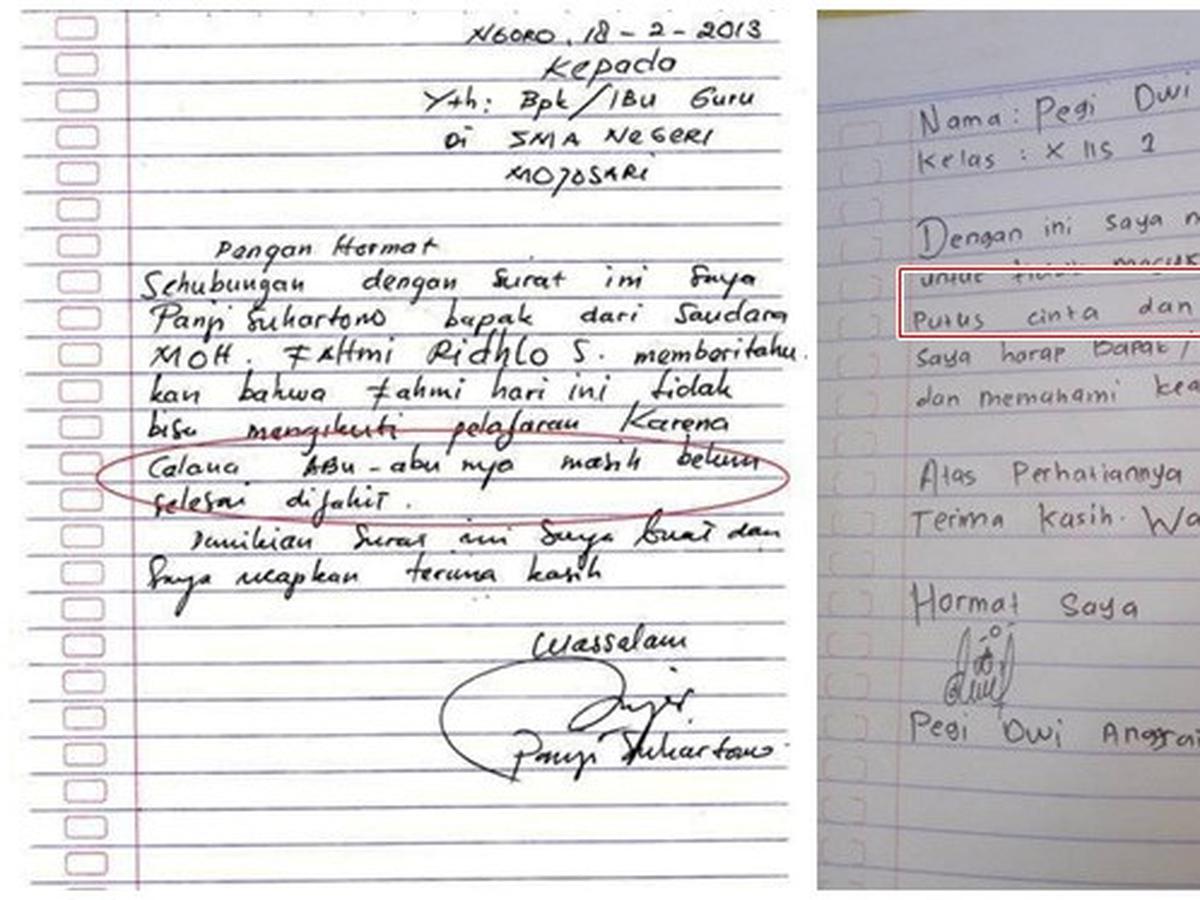 NGORO, 18 - 2 - 2013
Kepada
Yth: Bpk/IBu Guru
Di SMA NEGERI
MOJOSARI
Dengan Hormat
Sehubungan dengan surat ini Saya
Panji Suhartono bapak dari Saudara
MOH. FAHmi Ridhlo S. memberitahu
kan bahwa Fahmi hari ini tidak
bisa mengikuti pelajaran Karena
Celana ABu-abu nya masih belum
selesai dijahit.
Demikian Surat ini Saya buat dan
Saya ucapkan terima kasih
Wassalam
Panji Suhartono
Nama : Pegi Dwi
Kelas : X IIS 1
Dengan ini saya
untuk tidak masuk
Putus cinta dan
Saya harap Bapak/
dan memahami
Atas Perhatiannya
Terima Kasih. Wa
Hormat Saya
Pegi Dwi Anggrai